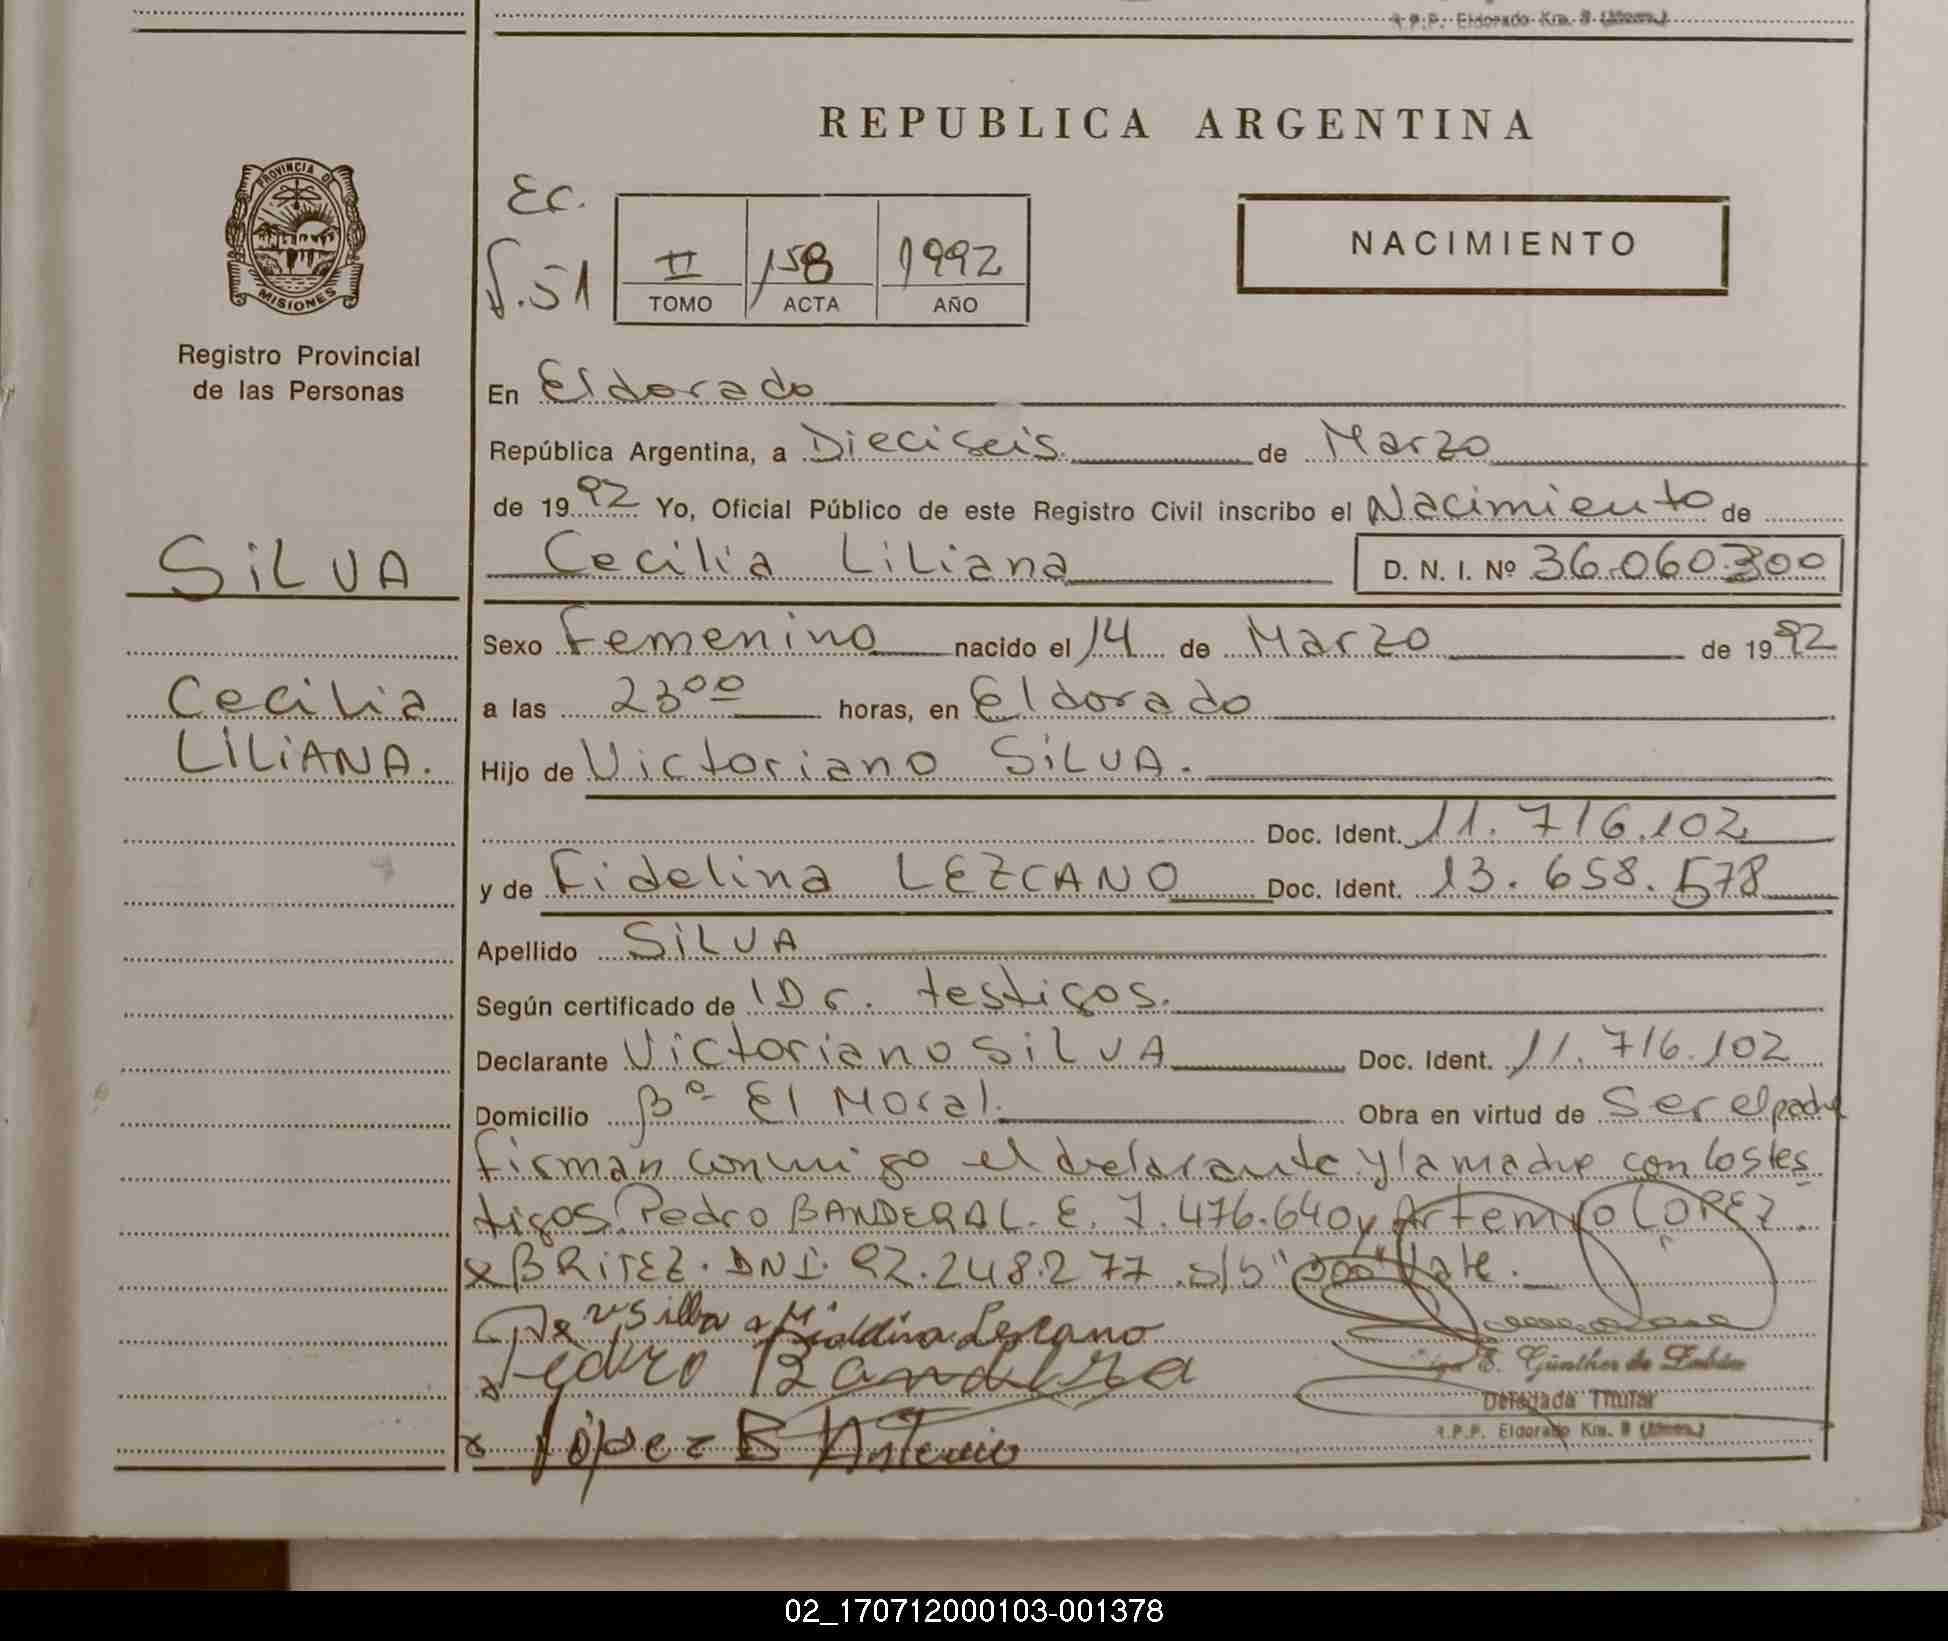 R.P.P. Eldorado Km. 9 (Mnes.)
REPUBLICA ARGENTINA
PROVINCIA DE
MISIONES
Registro Provincial
de las Personas
Ec.
f.51
II 158 1992
TOMO ACTA AÑO
NACIMIENTO
En Eldorado
República Argentina, a Dieciseis de Marzo
de 1992 Yo, Oficial Público de este Registro Civil inscribo el Nacimiento de
SILVA
Cecilia Liliana D. N. I. Nº 36.060.300
Sexo Femenino nacido el 14 de Marzo de 1992
Cecilia
a las 23 00 horas, en Eldorado
LILIANA.
Hijo de Victoriano SILVA.
Doc. Ident. 11.716.102
y de Fidelina LEZCANO Doc. Ident. 13.658.578
Apellido SILVA
Según certificado de IDr. testigos.
Declarante Victoriano SILVA Doc. Ident. 11.716.102
Domicilio Bº El Moral. Obra en virtud de ser el padre
firman conmigo el declarante y la madre con los tes
tigos Pedro BANDERA L.E. 7.476.640 y Artemio LOPEZ
x BRITEZ. DNI. 92.248.277. s/b "300" Vale.
V Silba x Fidelina Lezcano
x Pedro Bandera
x López B Antemio
E. Günther de
Delegada Titular
R.P.P. Eldorado Km. 9 (Mnes.)
02_170712000103-001378